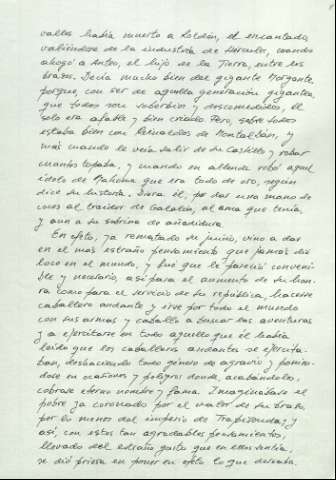 valles había muerto a Roldán, el encantado,
valiéndose de la industria de Hércules, cuando
ahogó a Anteo, el hijo de la Tierra, entre los
brazos. Decía mucho bien del gigante Morgante,
porque, con ser de aquella generación gigantea,
que todos son soberbios y descomedidos, él
solo era afable y bien criado. Pero, sobre todos
estaba bien con Reinaldos de Montalbán, y
más cuando le veía salir de su castillo y robar
cuantos topaba, y cuando en allende robó aquel
ídolo de Mahoma que era todo de oro, según
dice su historia. Diera él, por dar una mano de
coces al traidor de Galalón, al ama que tenía,
y aun a su sobrina de añadidura.
En efeto, ya rematado su juicio, vino a dar
en el más estraño pensamiento que jamás dio
loco en el mundo, y fue que le pareció conveni-
ble y necesario, así para el aumento de su hon-
ra como para el servicio de su república, hacerse
caballero andante y irse por todo el mundo
con sus armas y caballo a buscar las aventuras
y a ejercitarse en todo aquello que él había
leído que los caballeros andantes se ejercita-
ban, deshaciendo todo género de agravio y ponién-
dose en ocasiones y peligros donde, acabándolos,
cobrase eterno nombre y fama. Imaginábase el
pobre ya coronado por el valor de su brazo,
por lo menos del imperio de Trapisonda; y
así, con estos tan agradables pensamientos,
llevado del estraño gusto que en ellos sentía,
se dio priesa en poner en efeto lo que deseaba.